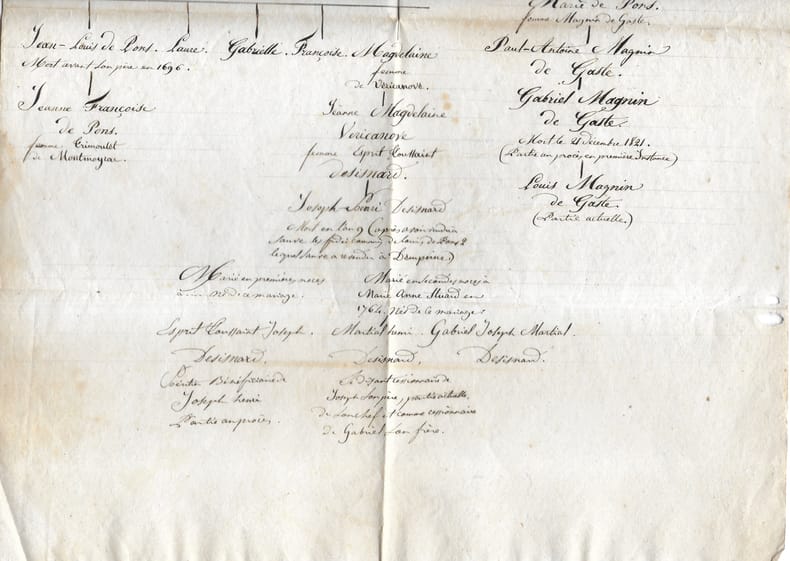 Marie de Pons.
femme Magnin de Gaste.
Jean-Louis de Pons. Laure. Gabrielle. Françoise. Magdelaine
Mort avant son père en 1696.
femme
de Vericanove.
Paul-Antoine Magnin
de Gaste.
Jeanne Françoise
de Pons.
femme Grimoulet
de Montmoyrac.
Jeanne Magdelaine
Vericanove
femme Esprit Toussaint
Desisnard.
Gabriel Magnin
de Gaste.
Mort le 21 décembre 1821.
(Partie au procès en première Instance)
Louis Magnin
de Gaste.
(Partie actuelle.)
Joseph henri Desisnard
Mort en l'an 9 (après avoir vendu à
Sauve les fideicommis de Louis de Pons 2
lequel Sauve a revendu à
Marié en premières noces
à un Né de ce mariage.
Marié en secondes noces à
Marie Anne Huard en
1764. Nés de ce mariage:
Esprit Toussaint Joseph. Martial henri. Gabriel Joseph Martial.
Desisnard. Desisnard. Desisnard.
héritier Bénéficiaire de
Joseph henri
Partie au procès.
Se disant cessionnaire de
Joseph son père, partie actuelle,
de son chef et comme cessionnaire
de Gabriel son frère.